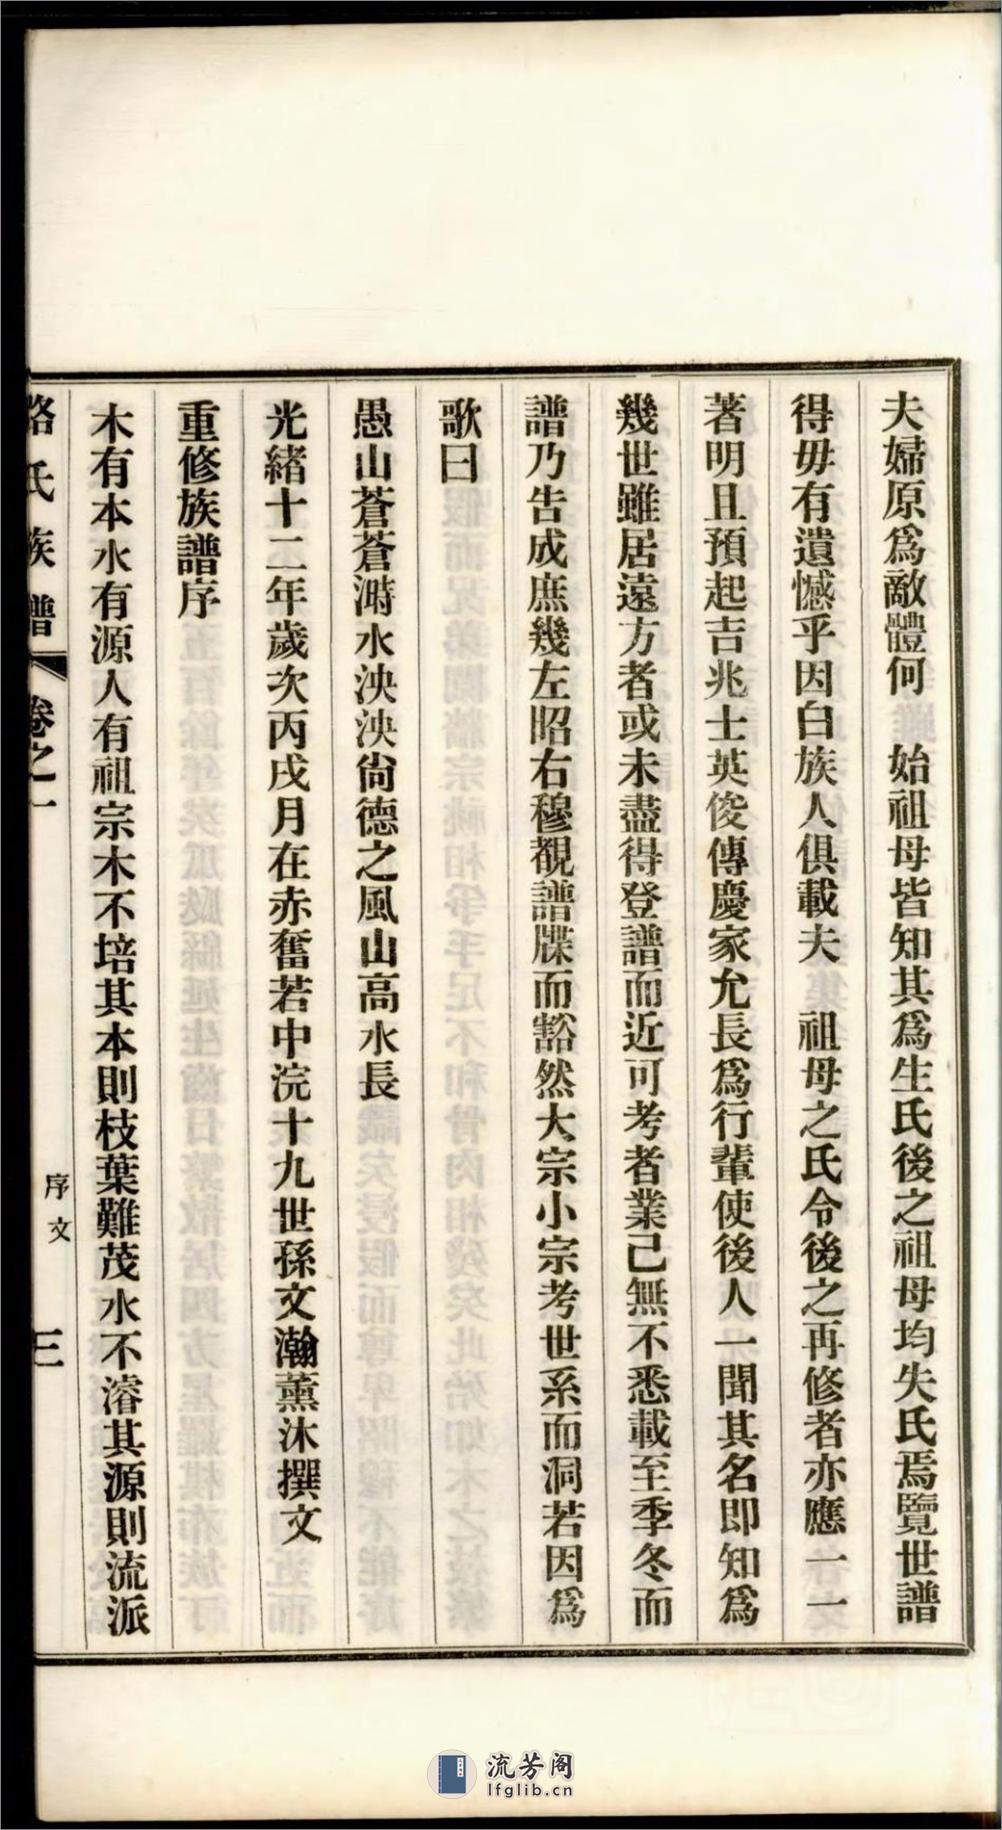 夫婦原爲敵體何　始祖母皆知其爲生氏後之祖母均失氏焉覽世譜
得毋有遺憾乎因白族人俱載夫　祖母之氏令後之再修者亦應一一
著明且預起吉兆士英俊傳慶家允長爲行輩使後人一聞其名即知爲
幾世雖居遠方者或未盡得登譜而近可考者業己無不悉載至季冬而
譜乃告成庶幾左昭右穆覩譜牒而豁然大宗小宗考世系而洞若因爲
歌曰
愚山蒼蒼溡水泱泱尙德之風山高水長
光緒十二年歲次丙戌月在赤奮若中浣十九世孫文瀚薰沐撰文
重修族譜序
木有本水有源人有祖宗木不培其本則枝葉難茂水不濬其源則流派
氏族譜 卷之一 序文 三
流芳阁
lfglib.cn